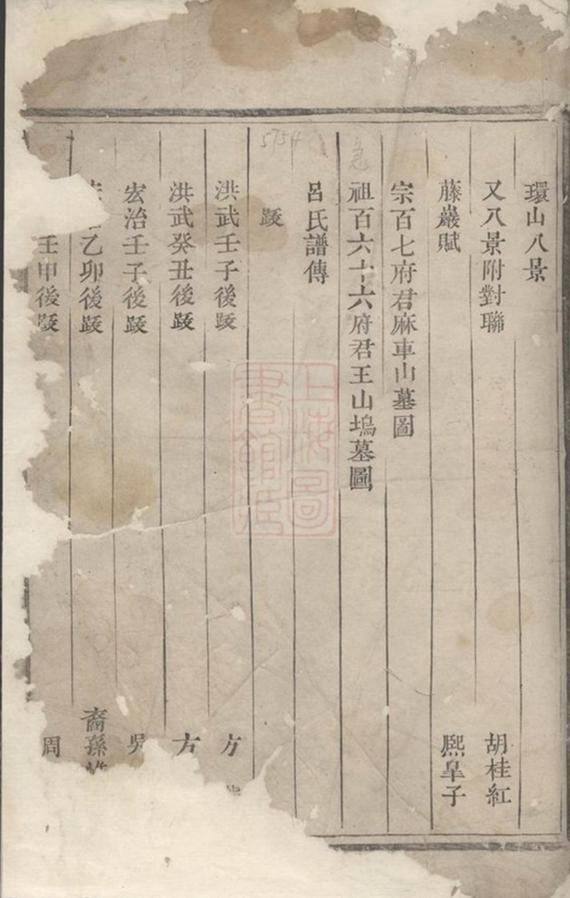 環山八景
又八景附對聯 胡桂紅
藤巖賦 熙臯子
宗百七府君麻車山墓圖
祖百六十六府君王山塢墓圖
呂氏譜傳
跋
洪武壬子後跋 方
洪武癸丑後跋 方
宏治壬子後跋 吳
乙卯後跋 裔孫
壬申後跋 周
5754
上海圖書館藏